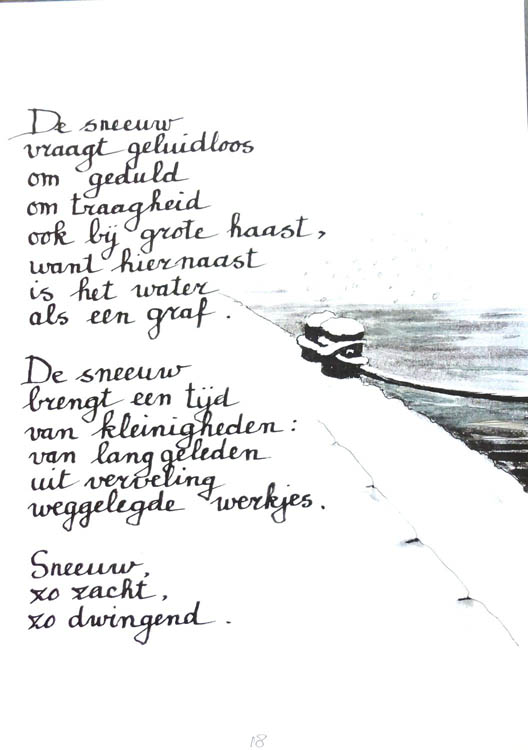 De sneeuw
vraagt geluidloos
om geduld
om traagheid
ook bij grote haast,
want hiernaast
is het water
als een graf.
De sneeuw
brengt een tijd
van kleinigheden:
van lang geleden
uit verveling
weggelegde werkjes.
Sneeuw,
zo zacht,
zo dwingend.
18